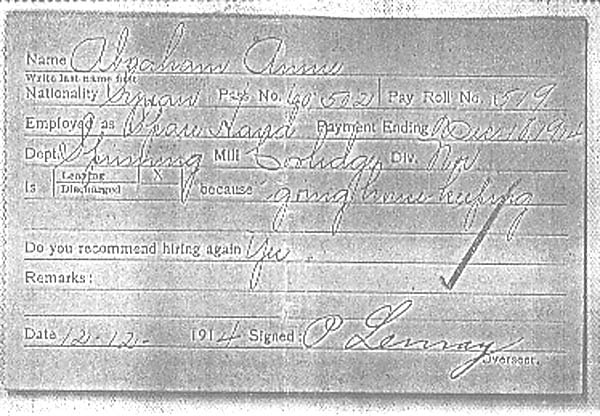 Name Abraham Annie
Write last name first
Nationality Syrian Pass. No. 512 Pay Roll No. 1519
Employed as Spare Hand Payment Ending Dec 18 1914
Dept. Spinning Mill Coolidge Div. No
Is Leaving X because going house keeping
Discharged
Do you recommend hiring again Yes.
Remarks:
Date 12-12- 1914 Signed:
Overseer.